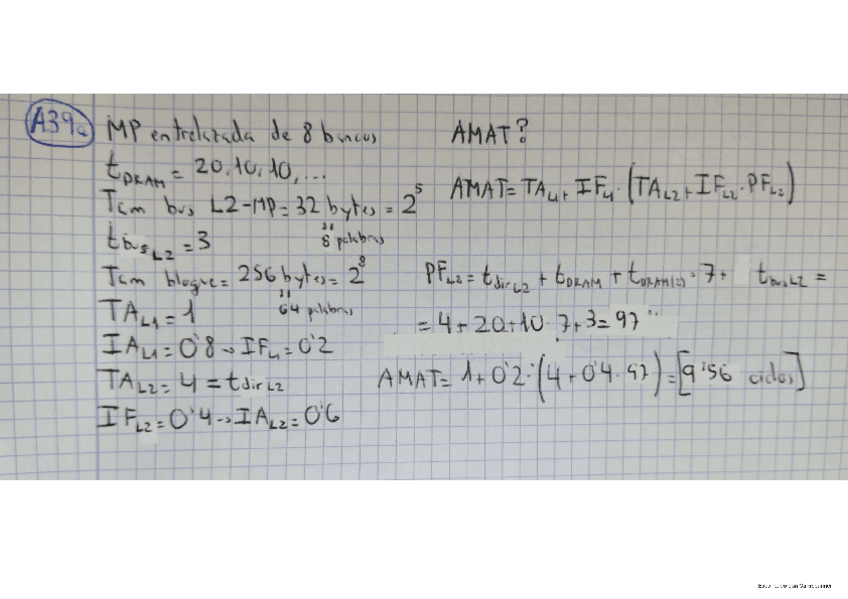 A39a
MP entrelazada de 8 bancos
t_DRAM = 20, 10, 10, ...
Tam bus L2-MP = 32 bytes = 2^5
8 palabras
t_bus L2 = 3
Tam bloque = 256 bytes = 2^8
64 palabras
TA_L1 = 1
IA_L1 = 0'8 → IF_L1 = 0'2
TA_L2 = 4 = t_dir L2
IF_L2 = 0'4 → IA_L2 = 0'6
AMAT?
AMAT = TA_L1 + IF_L1 · (TA_L2 + IF_L2 · PF_L2)
PF_L2 = t_dir L2 + t_DRAM + t_DRAM(2) · 7 + t_bus L2 =
= 4 + 20 + 10 · 7 + 3 = 97
AMAT = 1 + 0'2 · (4 + 0'4 · 97) = [9'56 ciclos]